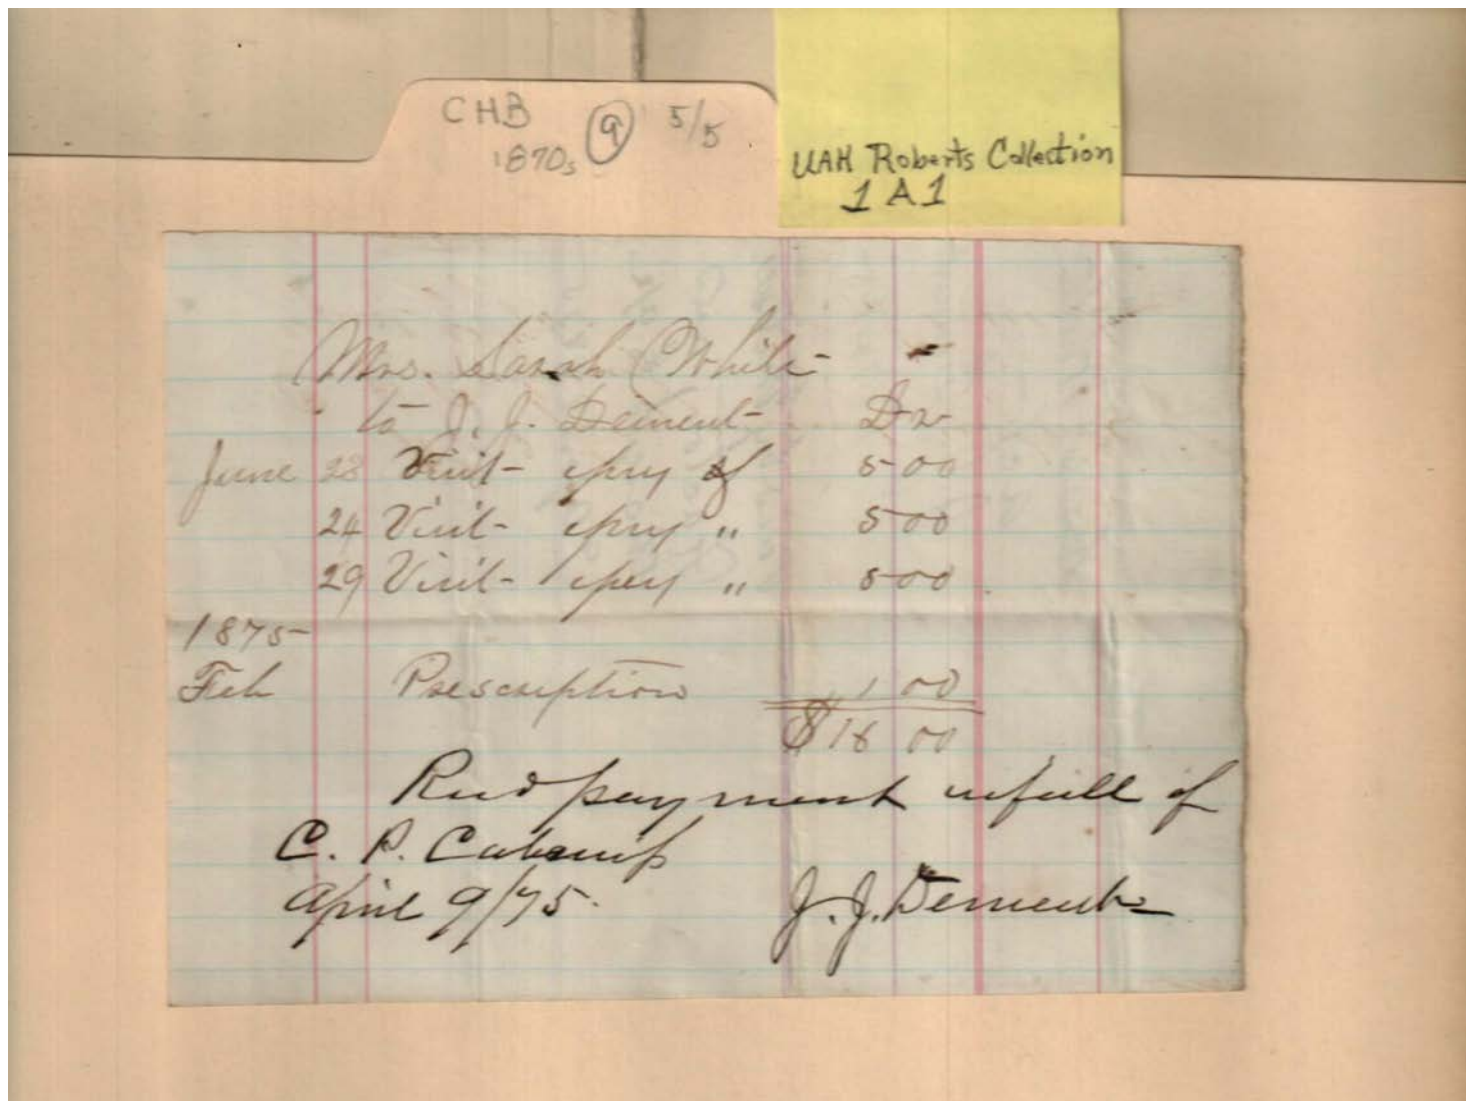 CHB 9 5/5
1870s
UAH Roberts Collection
1A1
Mrs. Sarah White
to J. J. Dement Dr
June 23 Visit of 5 00
24 Visit " 5 00
29 Visit " 5 00
1875
Feb Prescription 1 00
$16 00
Recd payment in full of
C. P. Cabaniss
April 9/75.
J. J. Dement